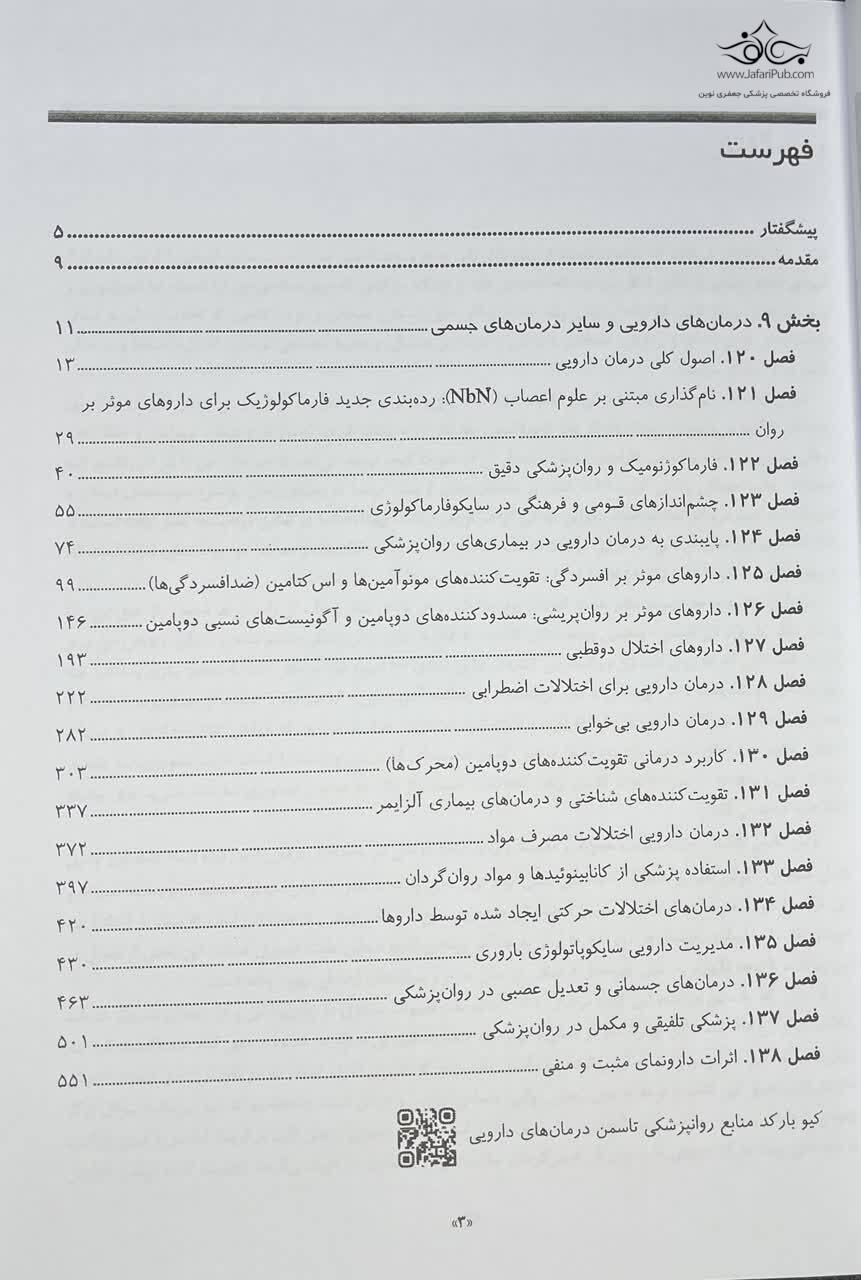 www.JafariPub.com
فروشگاه تخصصی پزشکی جعفری نوین
فهرست
پیشگفتار ........ ۵
مقدمه ........ ۹
بخش ۹. درمان‌های دارویی و سایر درمان‌های جسمی ........ ۱۱
فصل ۱۲۰. اصول کلی درمان دارویی ........ ۱۳
فصل ۱۲۱. نام‌گذاری مبتنی بر علوم اعصاب (NbN): رده‌بندی جدید فارماکولوژیک برای داروهای موثر بر
روان ........ ۲۹
فصل ۱۲۲. فارماکوژنومیک و روان‌پزشکی دقیق ........ ۴۰
فصل ۱۲۳. چشم‌اندازهای قومی و فرهنگی در سایکوفارماکولوژی ........ ۵۵
فصل ۱۲۴. پایبندی به درمان دارویی در بیماری‌های روان‌پزشکی ........ ۷۴
فصل ۱۲۵. داروهای موثر بر افسردگی: تقویت‌کننده‌های مونوآمین‌ها و اس‌کتامین (ضدافسردگی‌ها) ........ ۹۹
فصل ۱۲۶. داروهای موثر بر روان‌پریشی: مسدودکننده‌های دوپامین و آگونیست‌های نسبی دوپامین ........ ۱۴۶
فصل ۱۲۷. داروهای اختلال دوقطبی ........ ۱۹۳
فصل ۱۲۸. درمان دارویی برای اختلالات اضطرابی ........ ۲۲۲
فصل ۱۲۹. درمان دارویی بی‌خوابی ........ ۲۸۲
فصل ۱۳۰. کاربرد درمانی تقویت‌کننده‌های دوپامین (محرک‌ها) ........ ۳۰۳
فصل ۱۳۱. تقویت‌کننده‌های شناختی و درمان‌های بیماری آلزایمر ........ ۳۳۷
فصل ۱۳۲. درمان دارویی اختلالات مصرف مواد ........ ۳۷۲
فصل ۱۳۳. استفاده پزشکی از کانابینوئیدها و مواد روان‌گردان ........ ۳۹۷
فصل ۱۳۴. درمان‌های اختلالات حرکتی ایجاد شده توسط داروها ........ ۴۲۰
فصل ۱۳۵. مدیریت دارویی سایکوپاتولوژی باروری ........ ۴۳۰
فصل ۱۳۶. درمان‌های جسمانی و تعدیل عصبی در روان‌پزشکی ........ ۴۶۳
فصل ۱۳۷. پزشکی تلفیقی و مکمل در روان‌پزشکی ........ ۵۰۱
فصل ۱۳۸. اثرات دارونمای مثبت و منفی ........ ۵۵۱
کیو بارکد منابع روانپزشکی تاسمن درمان‌های دارویی
«۳»